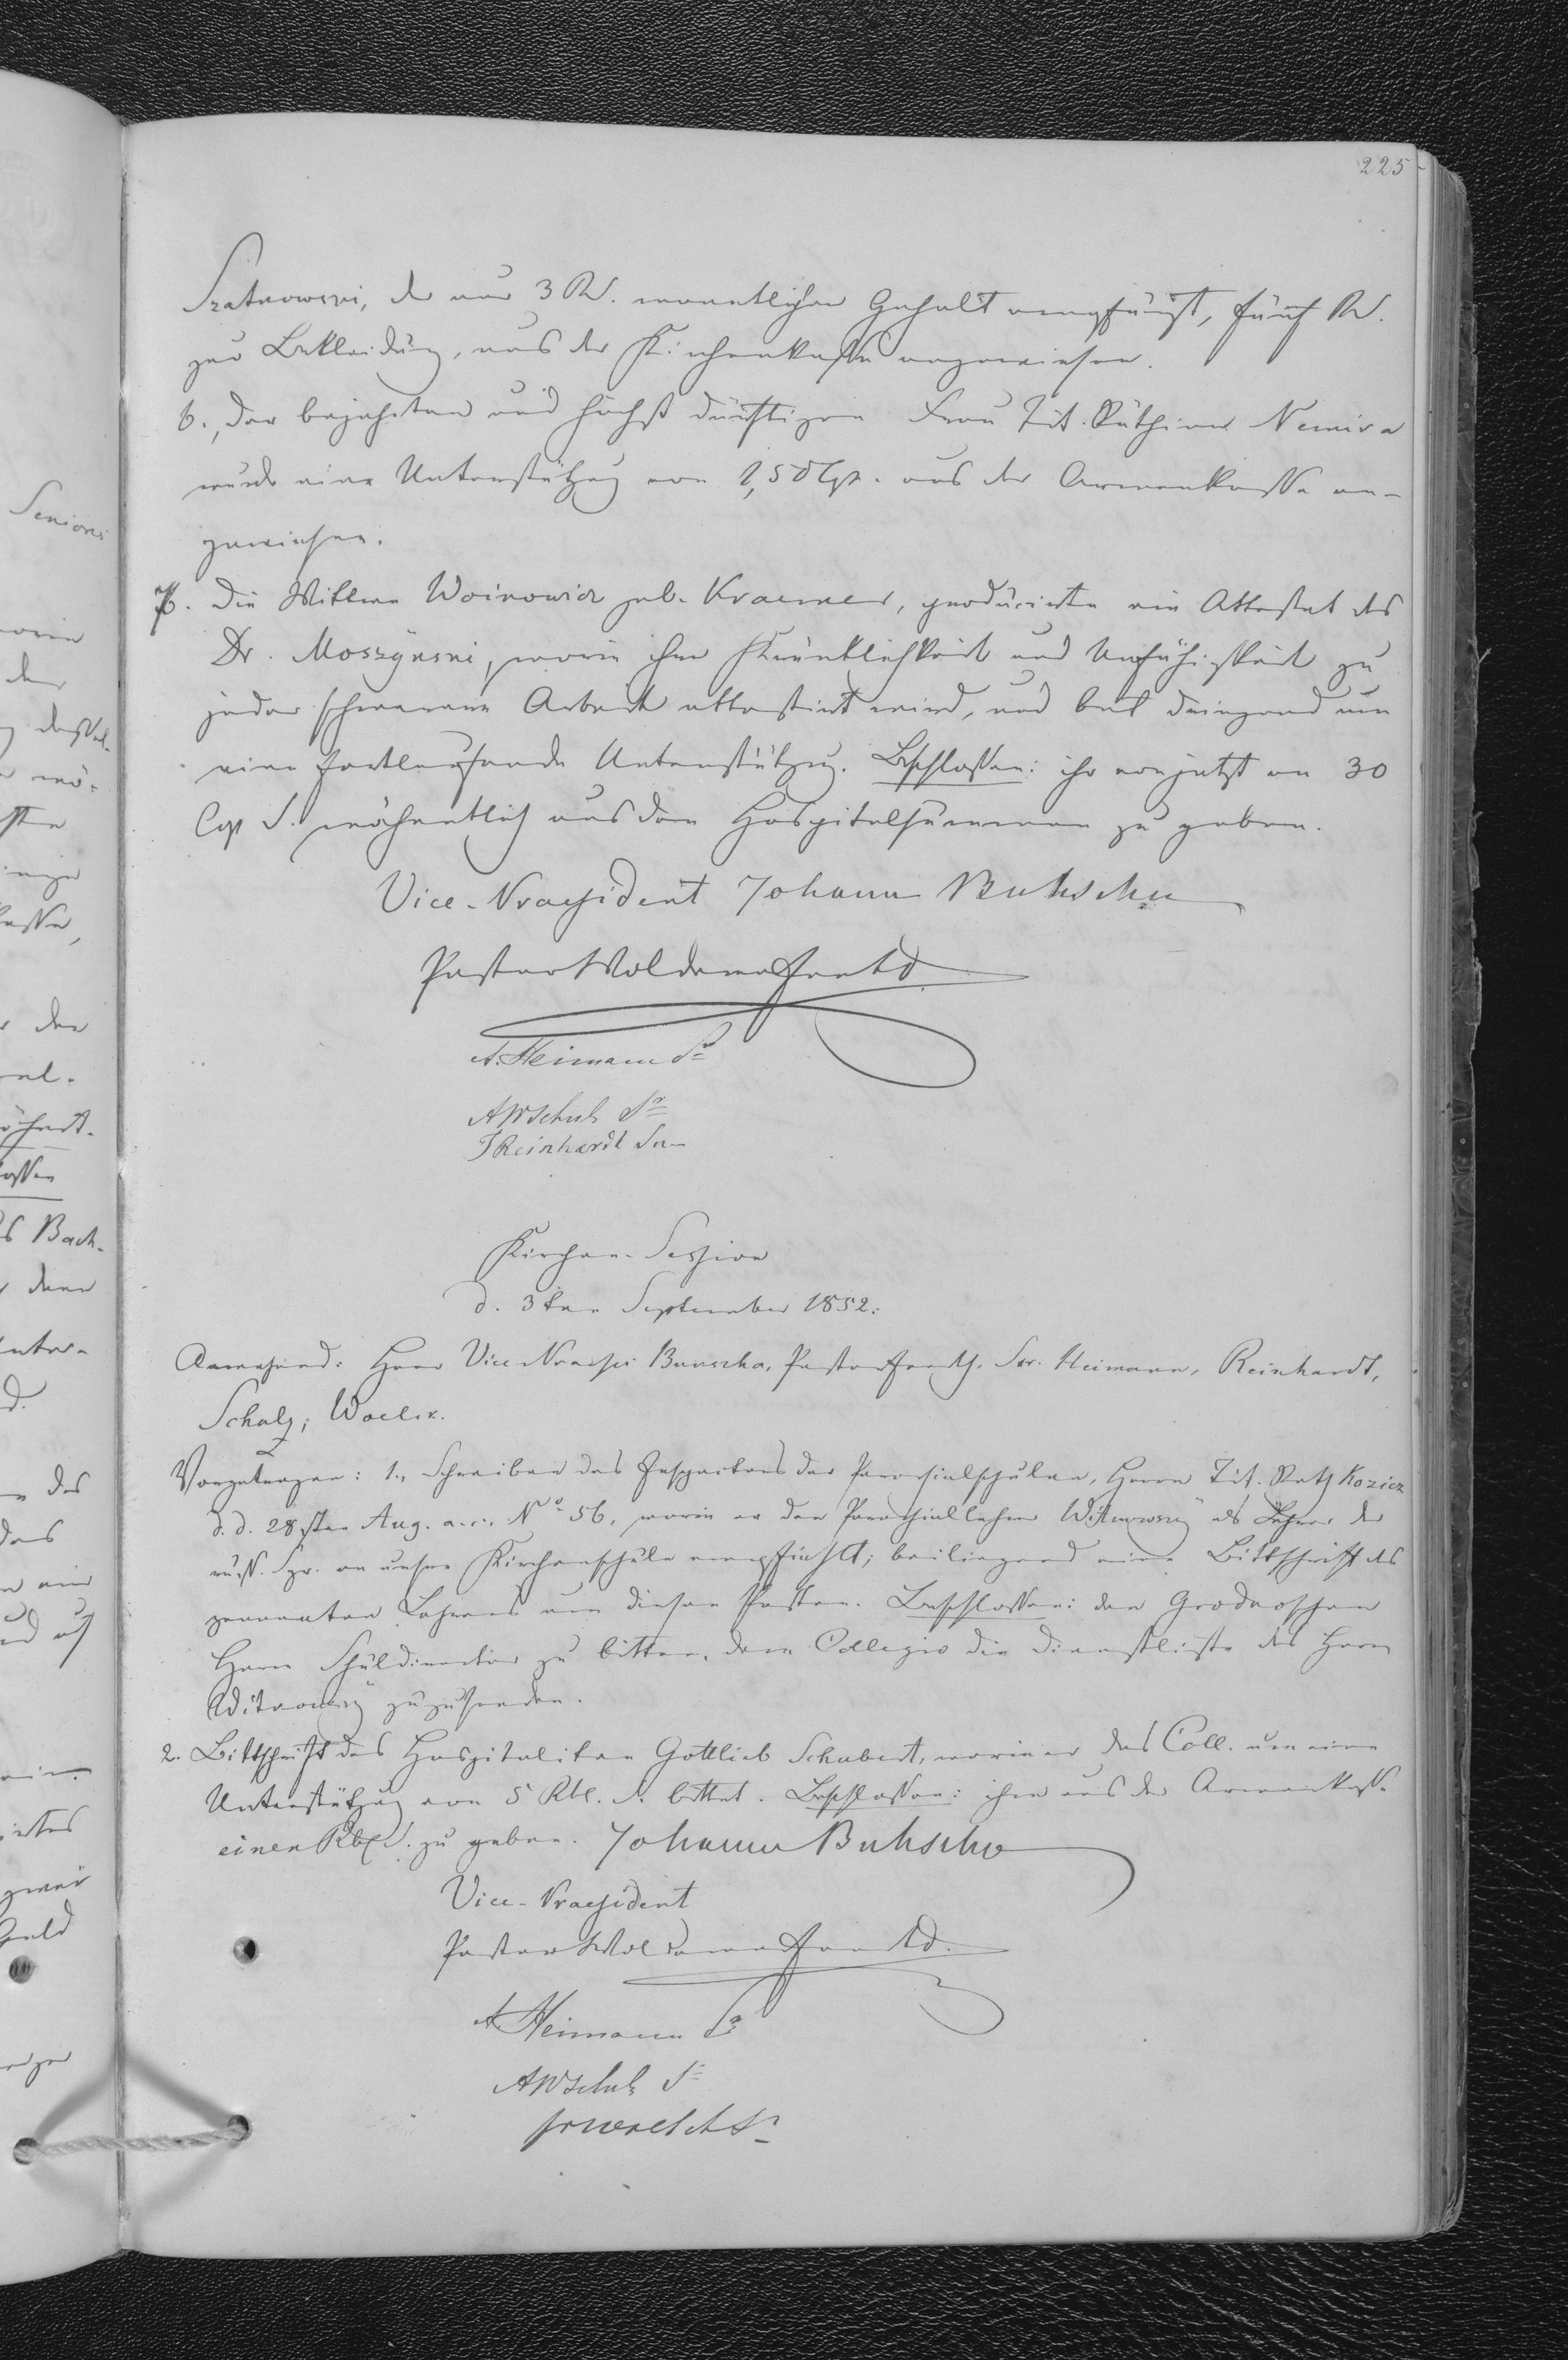 225
Szatnowski, der nur 3 R. S. monatlichen Gehalt empfängt, fünf R. S.
zur Bekleidung, aus der Kirchenkasse angewiesen.
6., der bejahrten und höchst dürftigen Frau Tit. Räthin Nemira
wurde eine Unterstützung von 1,50 Cop. aus der Armenkasse an-
gewiesen.
7. Die Wittwe Woinowicz geb. Kraemer, producirte ein Attestat des
Dr. Moszynski, worin ihre Kränklichkeit und Unfähigkeit zu
jeder schweren Arbeit attestirt wird, und bat dringend um
eine fortlaufende Unterstützung. Beschlossen: ihr von jetzt an 30
Cop S. wöchentlich aus den Hospitalsummen zu geben.
Vice-Praesident Johann Buhscha
Pastor Woldemar
A. Heimann Sr
AWSchulz Sr
J Reinhardt Sen
Kirchen-Session
d. 3ten September 1852.
Anwesend: Herr Vice Praeses Buuscha, Pastor Sen. Heimann, Reinhardt,
Schulz, Woelck.
Vorgetragen: 1., Schreiben des Inspectors der Parochialschulen, Herrn Tit. Rath Kozicz
d. d. 28sten Aug. a. c. No 56, worin er den Parochiallehrer als Lehrer der
russ. Spr. an unsere Kirchenschule empfiehlt; beiliegend eine Bittschrift des
genannten Lehrers um diesen Posten. Beschlossen: den Grodnoschen
Herrn Schuldirector zu bitten, dem Collegio die Dienstliste des Herrn
zuzusenden.
2. Bittschrift des Hospitaliten Gottlieb Schubert, worin er das Coll. um eine
Unterstützung von 5 Rbl. S. bittet. Beschlossen: ihm aus der Armenkasse
einen Rbl S. zu geben. Johann Buhscha
Vice-Praesident
Pastor Woldemar
A. Heimann Sr
AWSchulz S